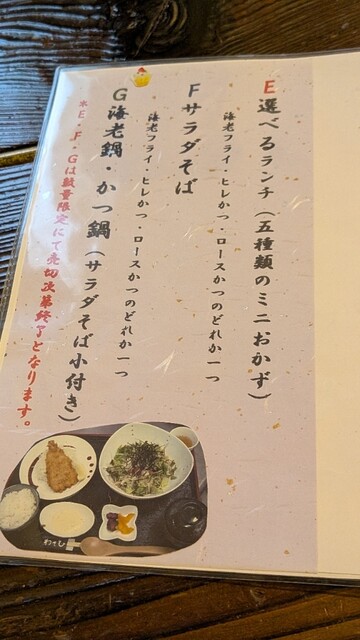 E 選べるランチ（五種類のミニおかず）
海老フライ・ヒレかつ・ロースかつのどれか一つ
F サラダそば
海老フライ・ヒレかつ・ロースかつのどれか一つ
G 海老鍋・かつ鍋（サラダそば小付き）
※E・F・Gは数量限定にて売切次第終了となります。